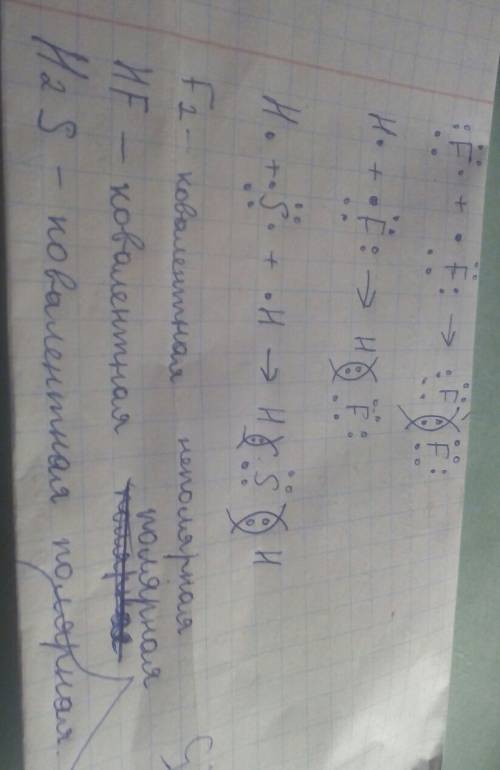 :F· + ·F: → :F(:)F:
H· + ·F: → H(:)F:
H· + ·S· + ·H → H(:)S(:)H
F2 - ковалентная неполярная
HF - ковалентная полярная
H2S - ковалентная полярная.